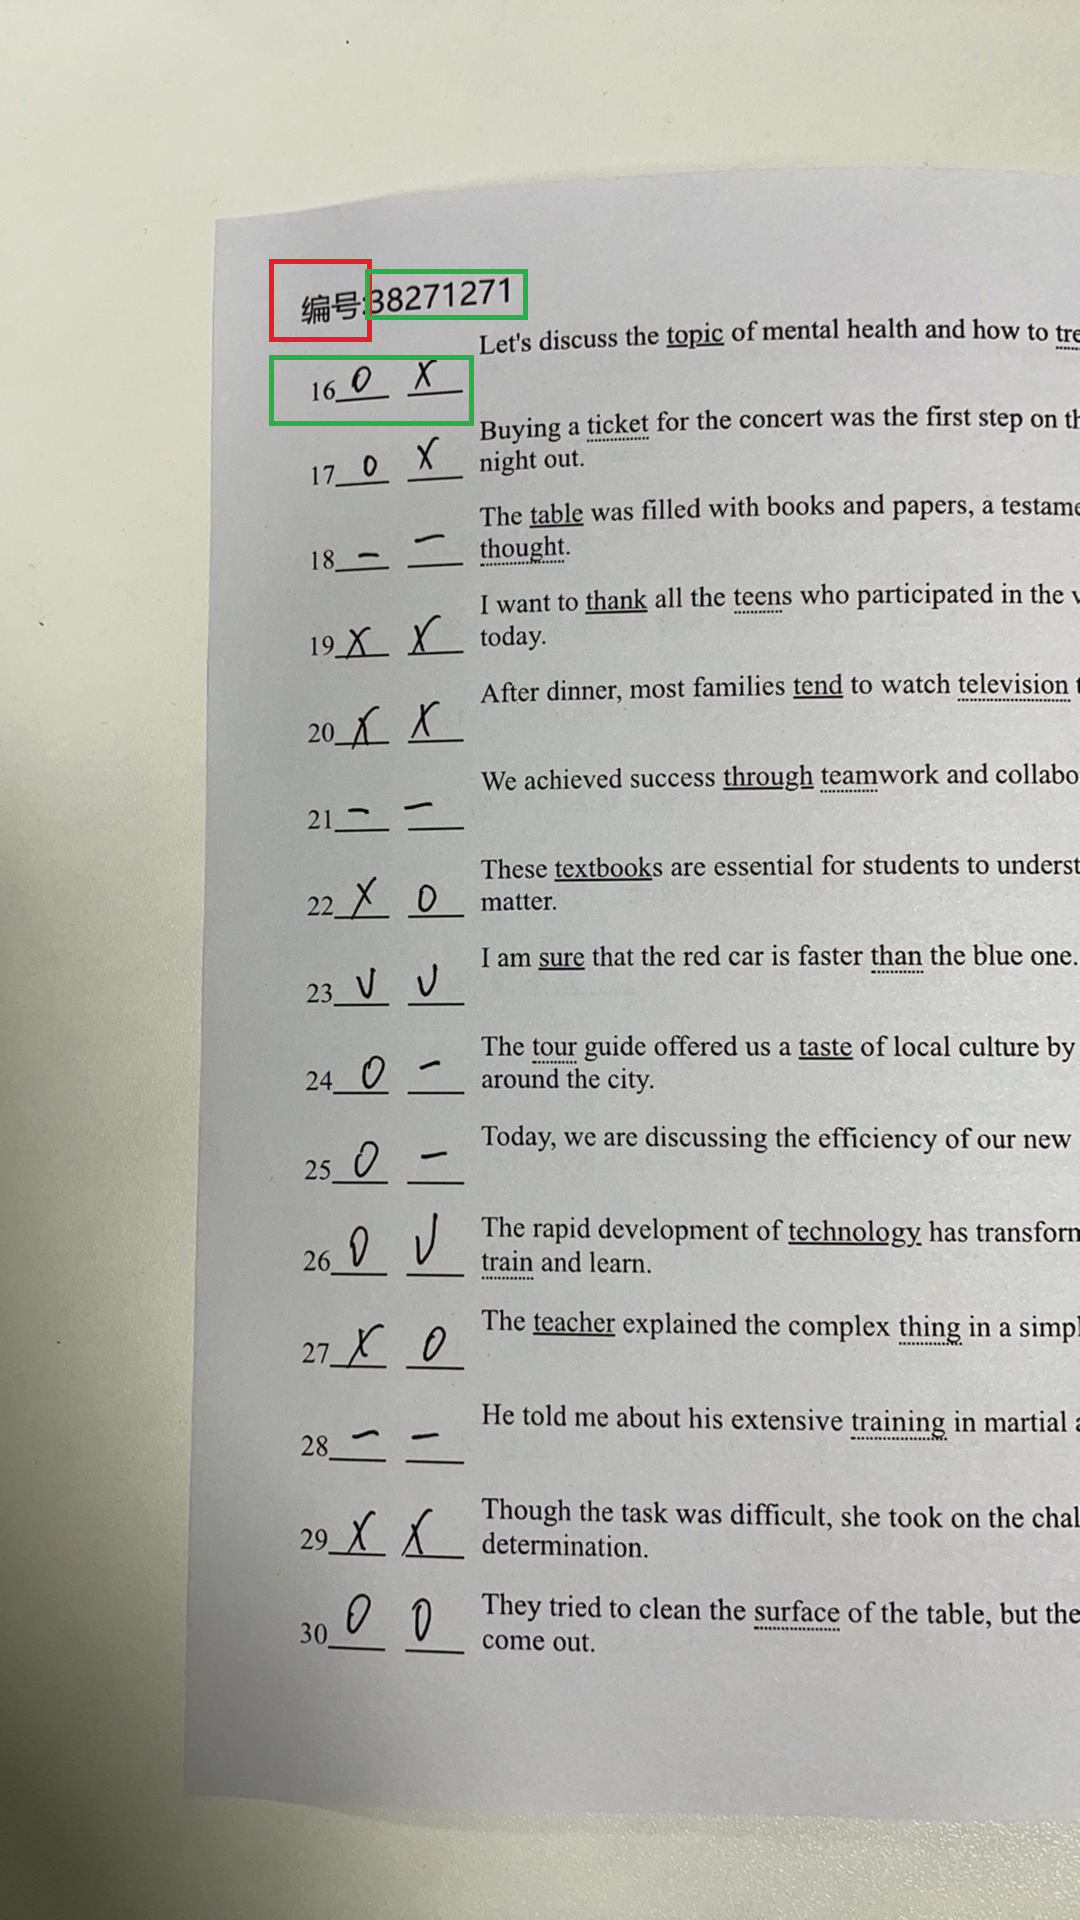 编号:38271271
Let's discuss the topic of mental health and how to
16 O X
Buying a ticket for the concert was the first step on
17 O X night out.
The table was filled with books and papers, a
18 – – thought.
I want to thank all the teens who participated in the
19 X X today.
After dinner, most families tend to watch television
20 X X
We achieved success through teamwork and
21 – –
These textbooks are essential for students to
22 X O matter.
I am sure that the red car is faster than the blue one.
23 V V
The tour guide offered us a taste of local culture by
24 O – around the city.
Today, we are discussing the efficiency of our new
25 O –
The rapid development of technology has
26 O V train and learn.
The teacher explained the complex thing in a
27 X O
He told me about his extensive training in martial
28 – –
Though the task was difficult, she took on the
29 X X determination.
They tried to clean the surface of the table, but
30 O O come out.